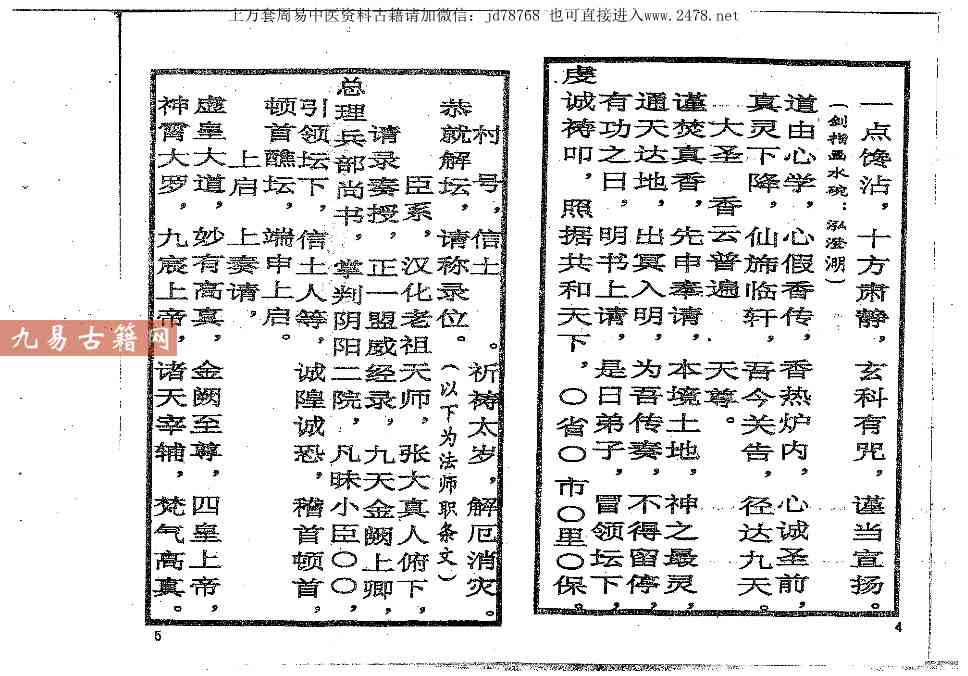 上万套周易中医资料古籍请加微信：jd78768 也可直接进入www.2478.net
一点馋沾，十方肃静，玄科有咒，谨当宣扬。
（剑指画水碗：泓澄湖）
道由心学，心假香传，香热炉内，心诚圣前，
真灵下降，仙旆临轩，吾今关告，径达九天。
大圣　香云普遍　天尊。
谨焚真香，先申奉请，本境土地，神之最灵，
通天达地，出冥入明，为吾传奏，不得留停，
有功之日，明书上请，是日弟子，冒领坛下，
虔诚祷叩，照据共和天下，〇省〇市〇里〇〇保。
4
村　号，信士　　。祈祷太岁，解厄消灾。
恭就解坛，请称录位。（以下为法师职条文）
臣系，汉化老祖天师，张大真人俯下，
请录奏授，正一盟威经录，九天金阙上卿，
总理兵部尚书，掌判阴阳二院，凡昧小臣〇〇，
引领坛下，信士人等，诚隍诚恐，稽首顿首，
顿首醮坛，端申上启。
上启　上奏请，
虚皇大道，妙有高真，金阙至尊，四皇上帝，
神霄大罗，九宸上帝，诸天宰辅，梵气高真。
5
九易古籍网